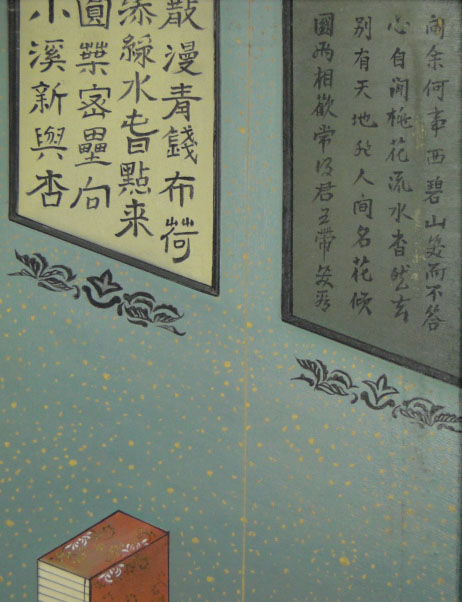 问余何事西碧山笑而不答
心自闲桃花流水杳然去
别有天地非人间名花倾
國两相歡常得君王带笑看
散漫青錢布荷
添綠水旹點来
圓葉密壘向
小溪新與杏